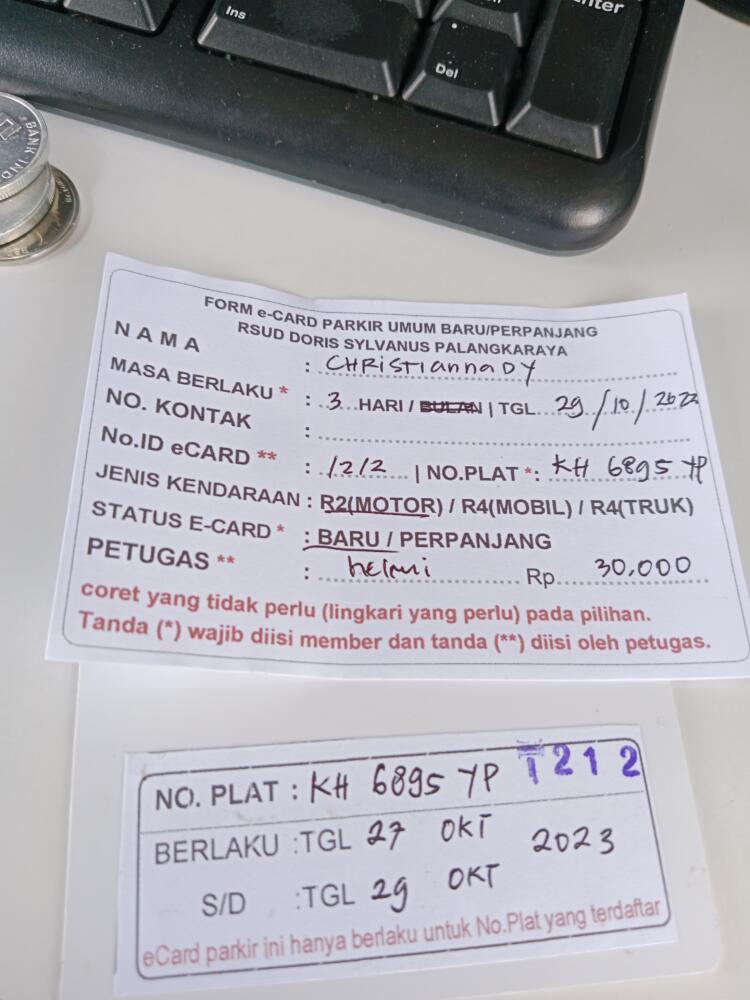 Ins
Del
Enter
BANK IND
FORM e-CARD PARKIR UMUM BARU/PERPANJANG
RSUD DORIS SYLVANUS PALANGKARAYA
NAMA : CHRISTIannaDY
MASA BERLAKU * : 3 HARI / BULAN | TGL 29/10/2023
NO. KONTAK :
No.ID eCARD ** : 1212 | NO.PLAT *: KH 6895 YP
JENIS KENDARAAN : R2(MOTOR) / R4(MOBIL) / R4(TRUK)
STATUS E-CARD * : BARU / PERPANJANG
PETUGAS ** : helmi Rp. 30,000
coret yang tidak perlu (lingkari yang perlu) pada pilihan.
Tanda (*) wajib diisi member dan tanda (**) diisi oleh petugas.
NO. PLAT : KH 6895 YP 1212
BERLAKU :TGL 27 OKT 2023
S/D :TGL 29 OKT
eCard parkir ini hanya berlaku untuk No.Plat yang terdaftar